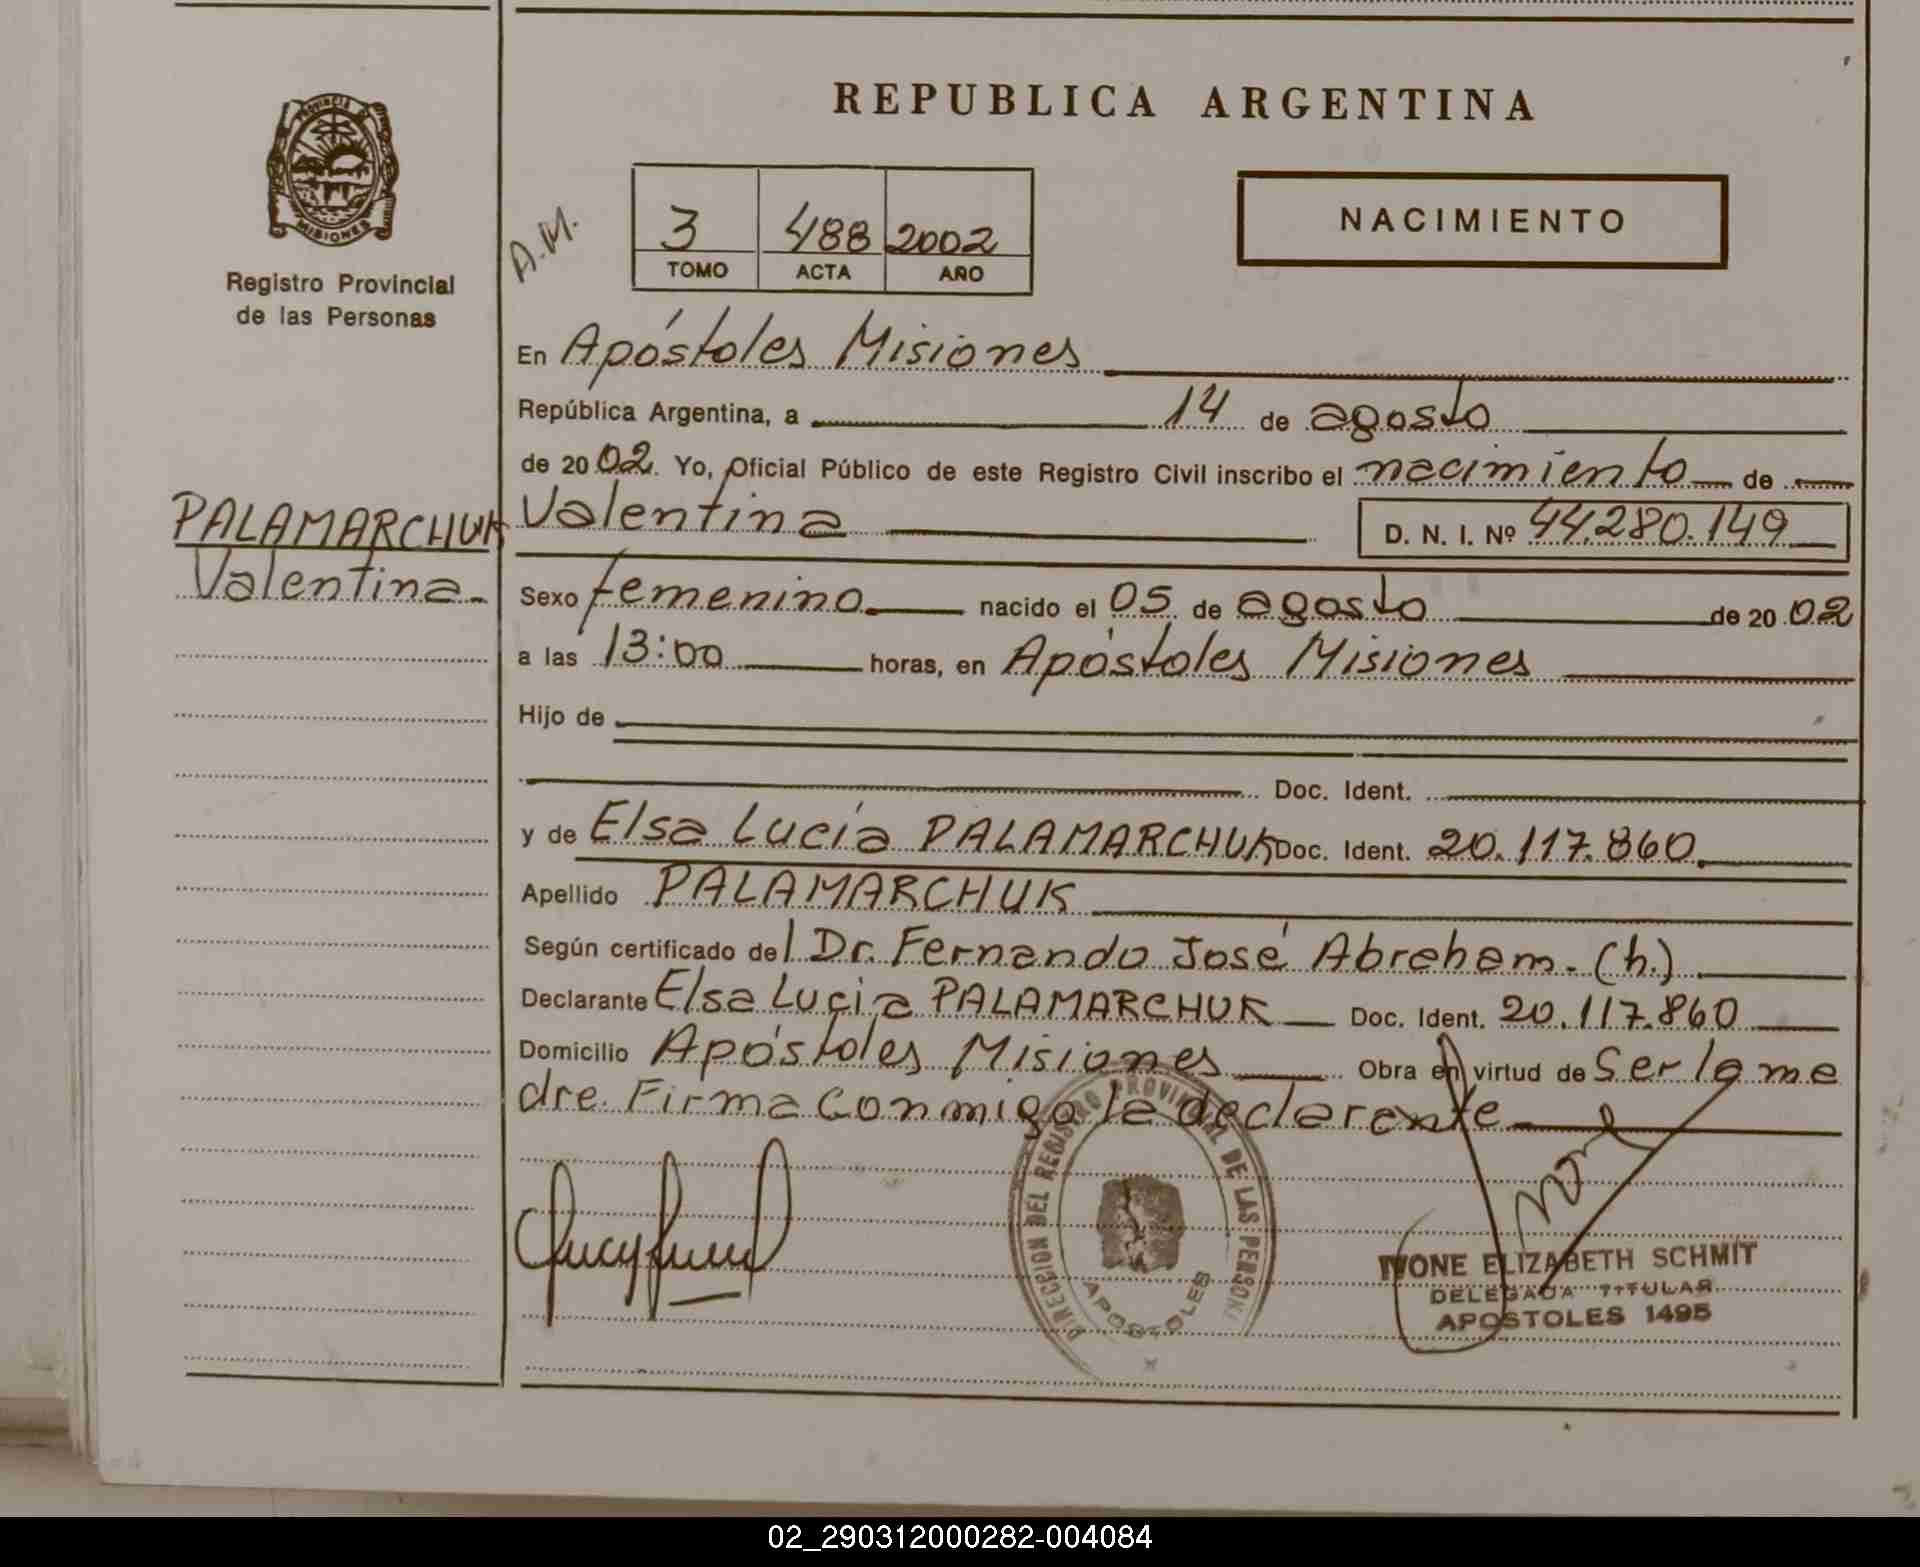 PROVINCIA DE
MISIONES
Registro Provincial
de las Personas
PALAMARCHUK
Valentina
REPUBLICA ARGENTINA
A.M.
3 488 2002
TOMO ACTA AÑO
NACIMIENTO
En Apóstoles Misiones
República Argentina, a 14 de agosto
de 2002. Yo, Oficial Público de este Registro Civil inscribo el nacimiento de
Valentina D. N. I. Nº 44.280.149
Sexo femenino nacido el 05 de agosto de 2002
a las 13:00 horas, en Apóstoles Misiones
Hijo de
Doc. Ident.
y de Elsa Lucía PALAMARCHUK Doc. Ident. 20.117.860
Apellido PALAMARCHUK
Según certificado del Dr. Fernando José Abraham. (h.)
Declarante Elsa Lucia PALAMARCHUK Doc. Ident. 20.117.860
Domicilio Apóstoles Misiones Obra en virtud de Ser la me
dre. Firma conmigo la declarante
DIRECCION DEL REGISTRO PROVINCIAL DE LAS PERSON
APOSTOLES
IVONE ELIZABETH SCHMIT
DELEGADA TITULAR
APOSTOLES 1495
02_290312000282-004084